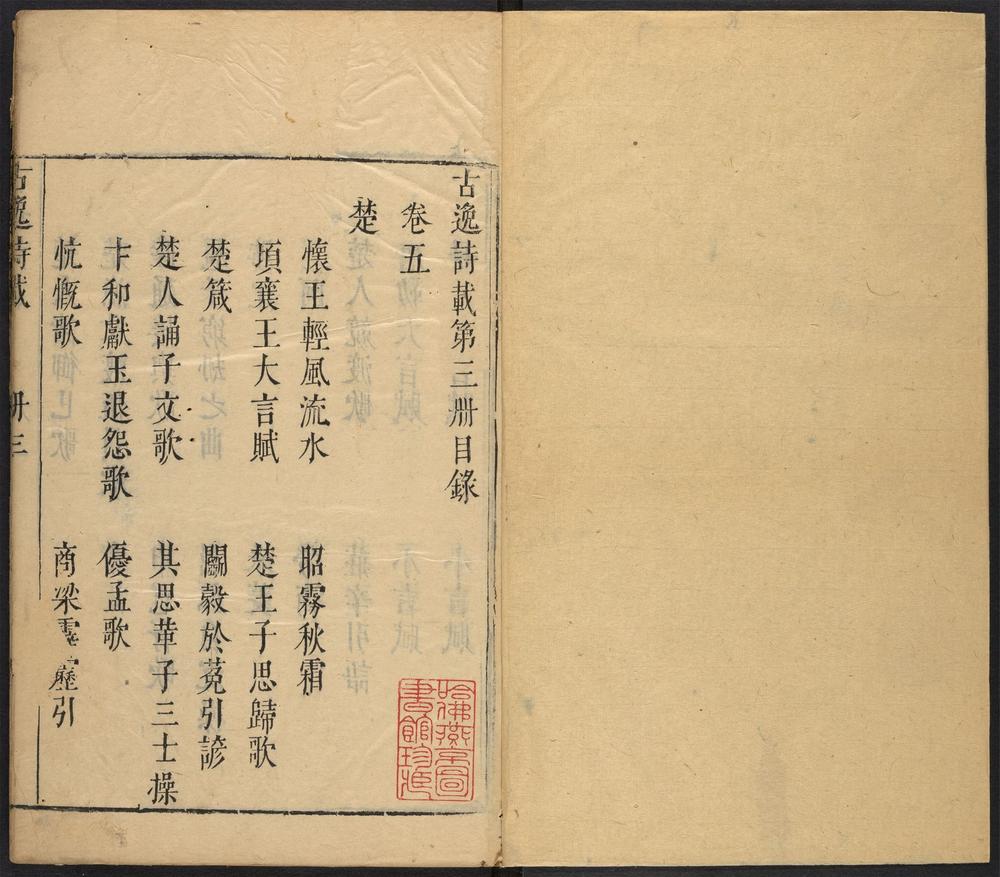 古逸詩載第三冊目錄
卷五
楚
懷王輕風流水
昭霧秋霜
頃襄王大言賦
楚王子思歸歌
楚箴
鬭穀於菟引諺
楚人誦子文歌
其思革子三士操
卞和獻玉退怨歌
優孟歌
忼慨歌
商梁霹靂引
古逸詩載
冊三
哈佛燕京圖書館珍藏